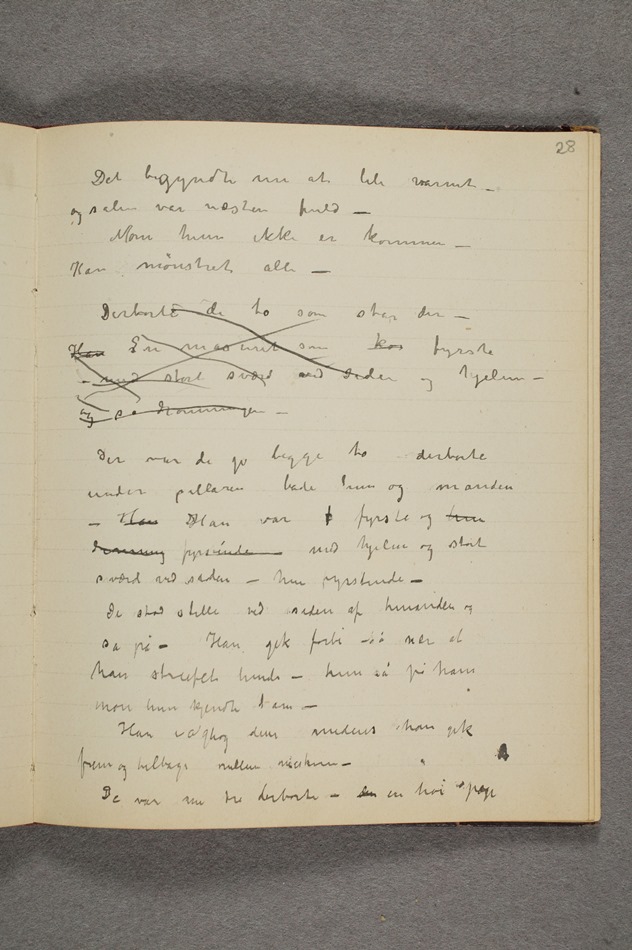 28
Det begyndte nu at bli varmt –
og salen var næsten fuld –
Mon hun ikke er kommen –
Han mønstret alle –
Derborte de to som står der –
Han En maskeret som fyrste
– med stort sværd ved siden og hjelm –
og så dronningen –
Der var de jo begge to derborte
under pillaren både hun og manden
– Han Han var fyrste og hun
dronning fyrstinde med hjelm og stort
sværd ved siden – hun fyrstinde –
De stod stille ved siden af hinanden og
så på – Han gik forbi så nær at
han streifet hende – hun så på ham
mon hun kjendte ham –
Han iagttog dem medens han gik
frem og tilbage mellem maskerne –
De var nu tre derborte – en en høi